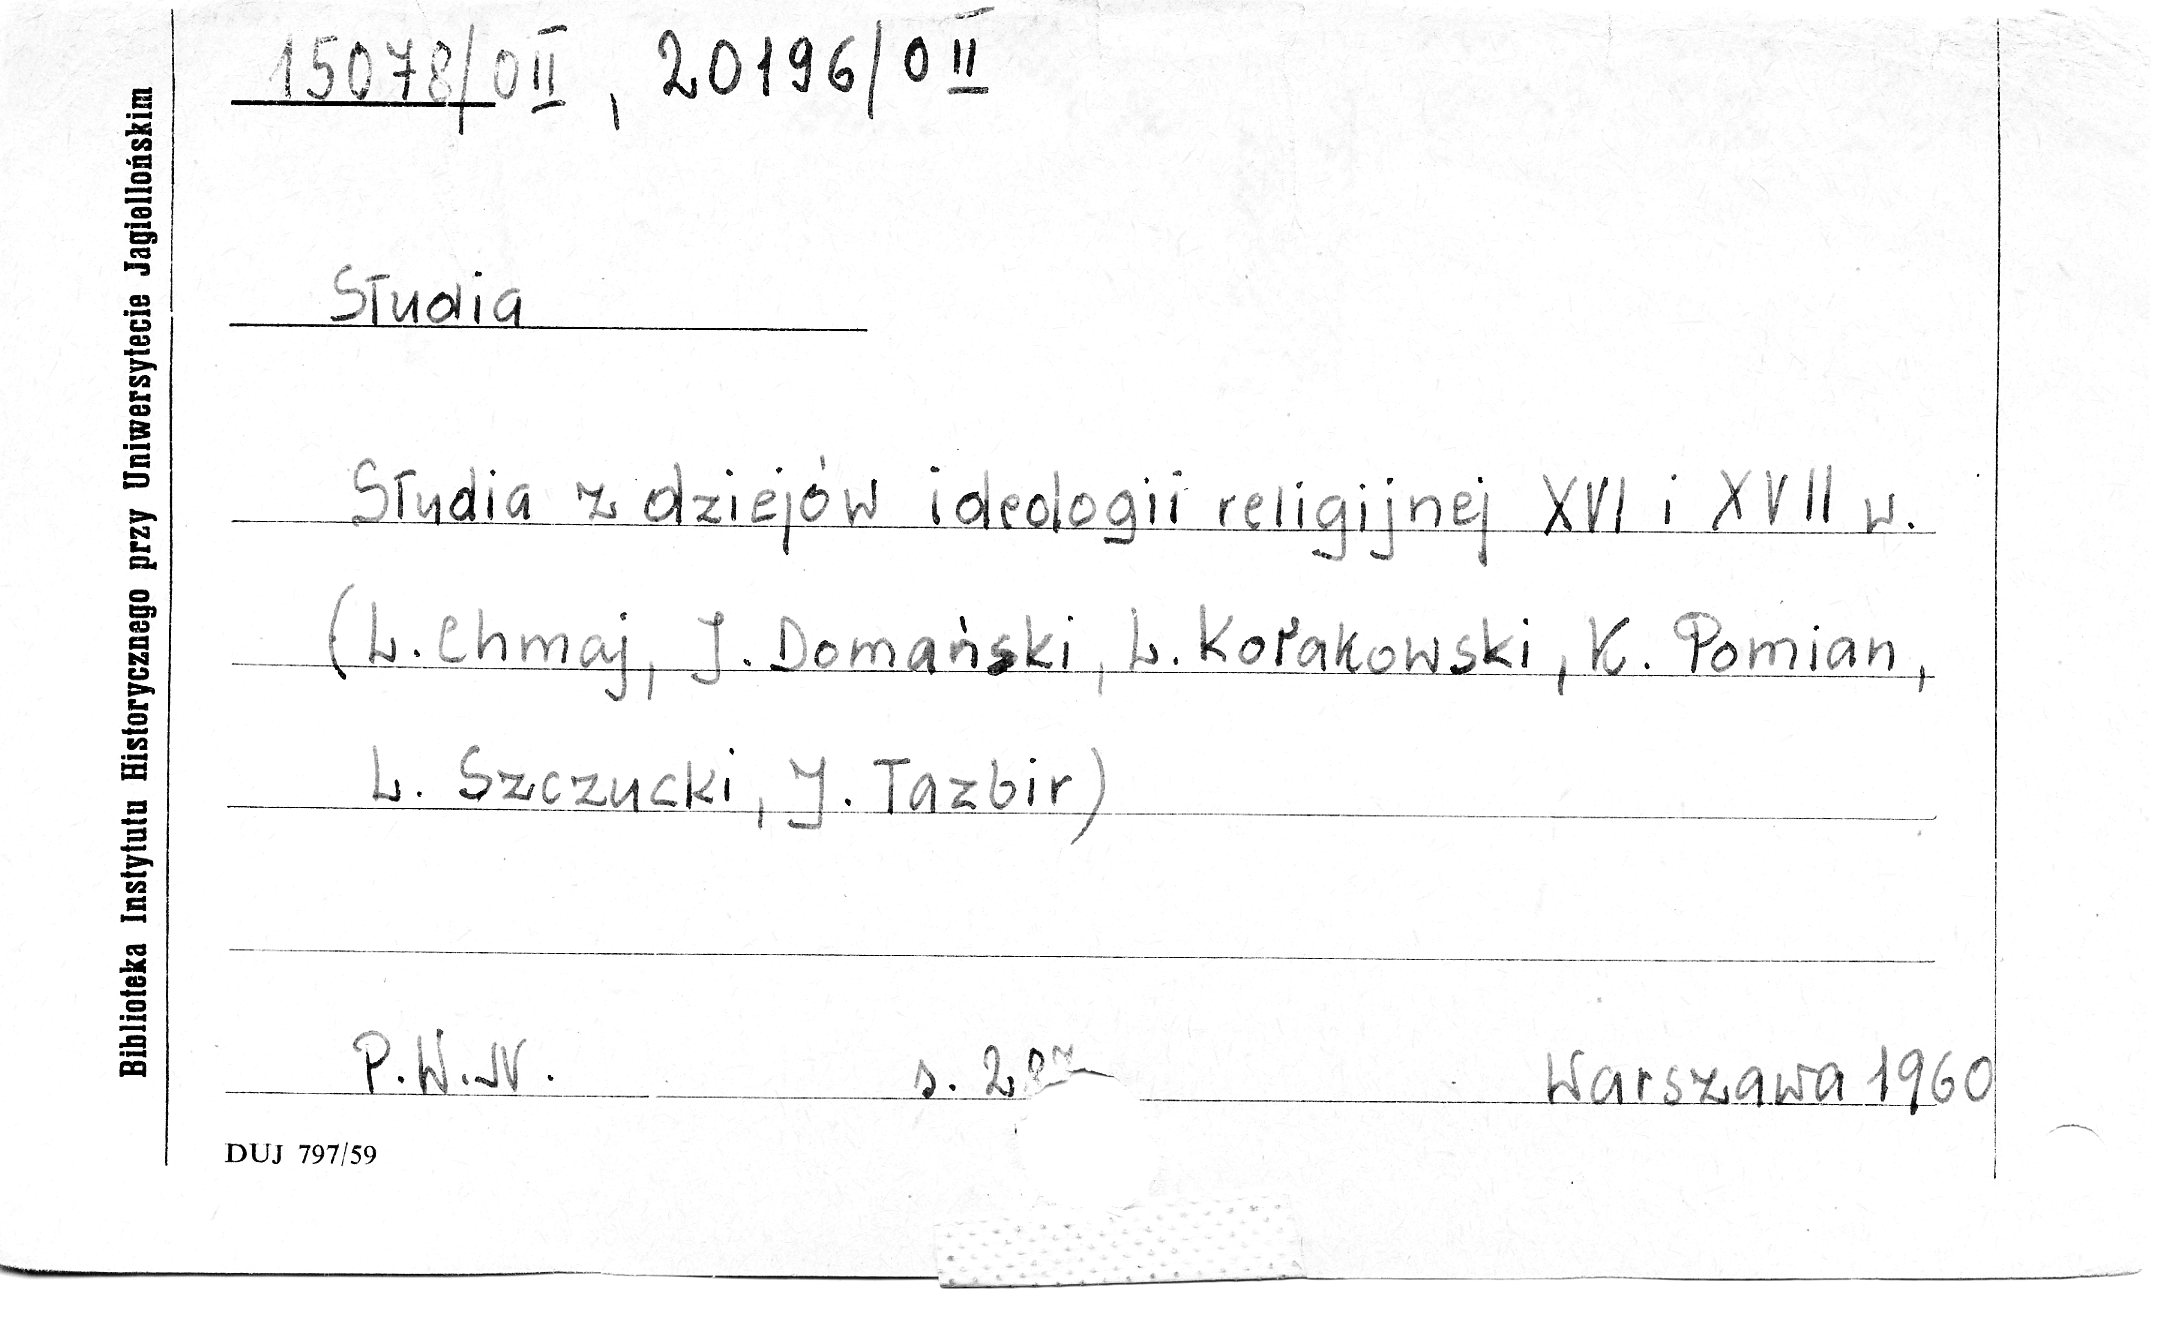 15078/0II, 20196/0II
Studia
Studia z dziejów ideologii religijnej XVI i XVII w.
(L. Chmaj, J. Domański, L. Kołakowski, K. Pomian,
L. Szczucki, J. Tazbir)
P.W.N. s. Warszawa 1960
DUJ 797/59
Biblioteka Instytutu Historycznego przy Uniwersytecie Jagiellońskim